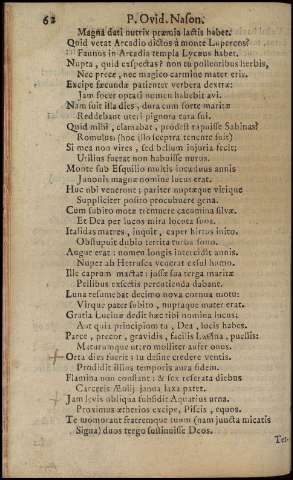 62 P. Ovid. Nason.
Magna dati nutrix præmia lactis habet.
Quid vetat Arcadio dictos à monte Lupercos?
Faunus in Arcadia templa Lycæus habet.
Nupta, quid exspectas? non tu pollentibus herbis,
Nec prece, nec magico carmine mater eris.
Excipe fæcundæ patienter verbera dextræ:
Jam socer optati nomen habebit avi.
Nam fuit illa dies, dura cum sorte maritæ
Reddebant uteri pignora rara sui.
Quid mihi, clamabat, prodest rapuisse Sabinas?
Romulus (hoc illo sceptra tenente fuit)
Si mea non vires, sed bellum injuria fecit;
Utilius fuerat non habuisse nurus.
Monte sub Esquilio multis incæduus annis
Junonis magnæ nomine lucus erat.
Huc ubi venerunt; pariter nuptæque virique
Suppliciter posito procubuere genu.
Cum subito motæ tremuere cacumina silvæ.
Et Dea per lucos mira locuta suos.
Italidas matres, inquit, caper hirtus inito.
Obstupuit dubio territa turba sono.
Augur erat: nomen longis intercidit annis.
Nuper ab Hetrusca venerat exsul humo.
Ille caprum mactat: jussæ sua terga maritæ
Pellibus exsectis percutienda dabant.
Luna resumebat decimo nova cornua motu:
Virque pater subito, nuptaque mater erat.
Gratia Lucinæ dedit hæc tibi nomina lucus;
Aut quia principium tu, Dea, lucis habes.
Parce, precor, gravidis, facilis Lucina, puellis:
Maturumque utero molliter aufer onus.
Orta dies fuerit: tu desine credere ventis.
Prodidit illius temporis aura fidem.
Flamina non constant: & sex reserata diebus
Carceris Æolii janua laxa patet.
Jam levis obliqua subsidit Aquarius urna.
Proximus ætherios excipe, Piscis, equos.
Te memorant fratremque tuum (nam juncta micatis
Signa) duos tergo sustinuisse Deos.
Ter-